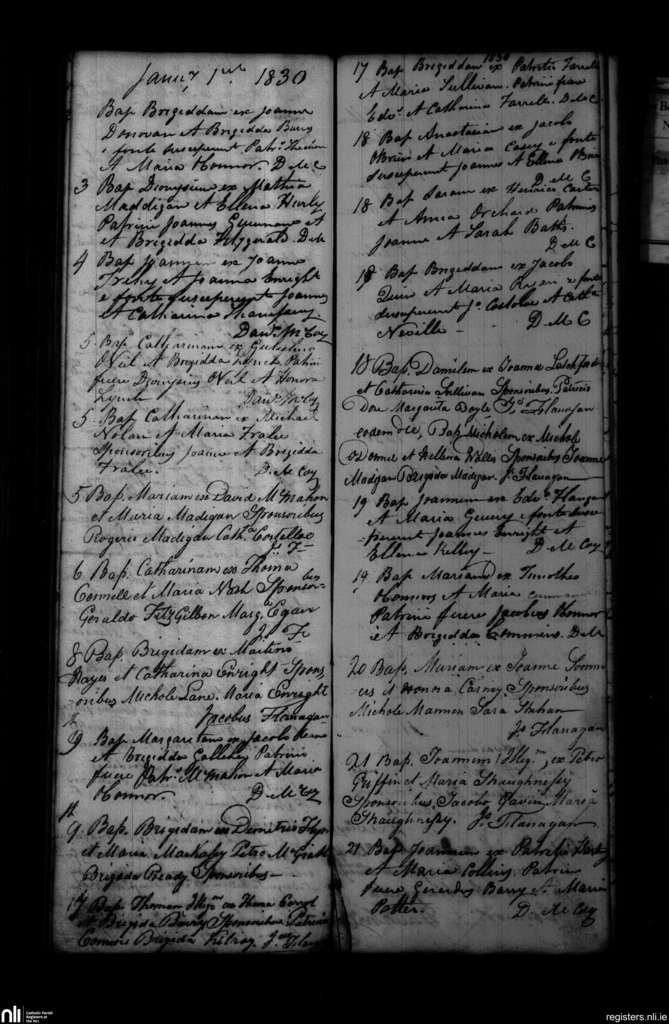 Janry 1st 1830
Bap Brigeddam ex Joanne
Donovan et Brigedda Barry
e fonte susceperunt Patr.
et Maria Connor. D McC
3 Bap Dionysium ex Mathia
Maddigan et Ellena Hurly
Patrini Joannes et
et Brigedda Fitzgerald. D McC
4 Bap Joannem ex Joanne
et Joanna Enright
e fonte susceperunt Joannes
et Catharina
Danl McCoy
5. Bap Catharinam ex
Neil et Brigedda Patrini
fuere Dyonysius Neil et Honora
Lynch Danl McCoy
5. Bap Catharinam ex Michael
Nolan et Maria Fralee
Sponsoribus Joanne et Brigedda
Fralee. D. McCoy
5 Bap. Mariam ex David McMahon
et Maria Madigan Sponsoribus
Rogerio Madigan Cath.a Costelloe
Js F
6 Bap. Catharinam ex Thoma
Connell et Maria Nash Sponsoribus
Geraldo FitzGibbon Marg.a Egan
Js Fr
8 Bap. Brigidam ex Martino
Hayes et Catharina Enright Spons
oribus Michole Lane. Maria Enright
Jacobus Flanagan
9 Bap Margaretam ex Jacobo
et Brigedda Patrini
fuere Patr. McMahon et Maria
Connor. D McCoy
9. Bap. Brigidam ex Demitrio
et Maria Petro
Brigida Ready Sponsoribus
17 Bap Thomam Illegm ex Thoma
et Brigida Barry Sponsoribus Patricio
Connors Brigida Js
1830
17 Bap Brigeddam ex Patritio Farrell
et Maria Sullivan. Patrini fuere
Edw. et Catharina Farrelle. D McC
18 Bap Anastasiam ex Jacobo
OBrien et Maria Casey e fonte
susceperunt Joannes et Ellena Brien
D McC
18 Bap Saram ex Henrico Carter
et Anna Orchard Patrinis
Joanne et Sarah Batts.
D McC
18 Bap Brigeddam ex Jacobo
Quin et Maria Ryan e fonte
susceperunt Js. Costoloe et Cath
Neville D McC
18 Bap. Danielem ex Joanne
et Catharina Sullivan Sponsoribus. Patricio
Dore Margarita Doyle Js Flanagan
eodem die, Bap Micholem ex Michole
OConnor et Hellena Wills Sponsoribus Joanne
Madigan Brigida Madigan. Js Flanagan
19 Bap Joannem ex Edw.
et Maria e fonte susce-
perunt Joannes Enright et
Ellena Kelly D McCoy
19 Bap Mariam ex Timotheo
Connors et Maria
Patrini fuere Jacobus Connor
et Brigedda Commins. D McC
20 Bap. Miriam ex Joanne
et Honora Carney Sponsoribus
Michole Mannon Sara
Js Flanagan
21 Bap. Joannem Illegm, ex Petro
Griffin et Maria Shaughnessy
Sponsoribus, Jacobo Gavin, Maria
Shaughnessy. Js Flanagan
21 Bap Joannem ex Patritio
et Maria Collins. Patrini
fuere Gerardus Barry et Maria
Potter. D. McCoy
nli Catholic Parish
Registers at
the NLI
registers.nli.ie